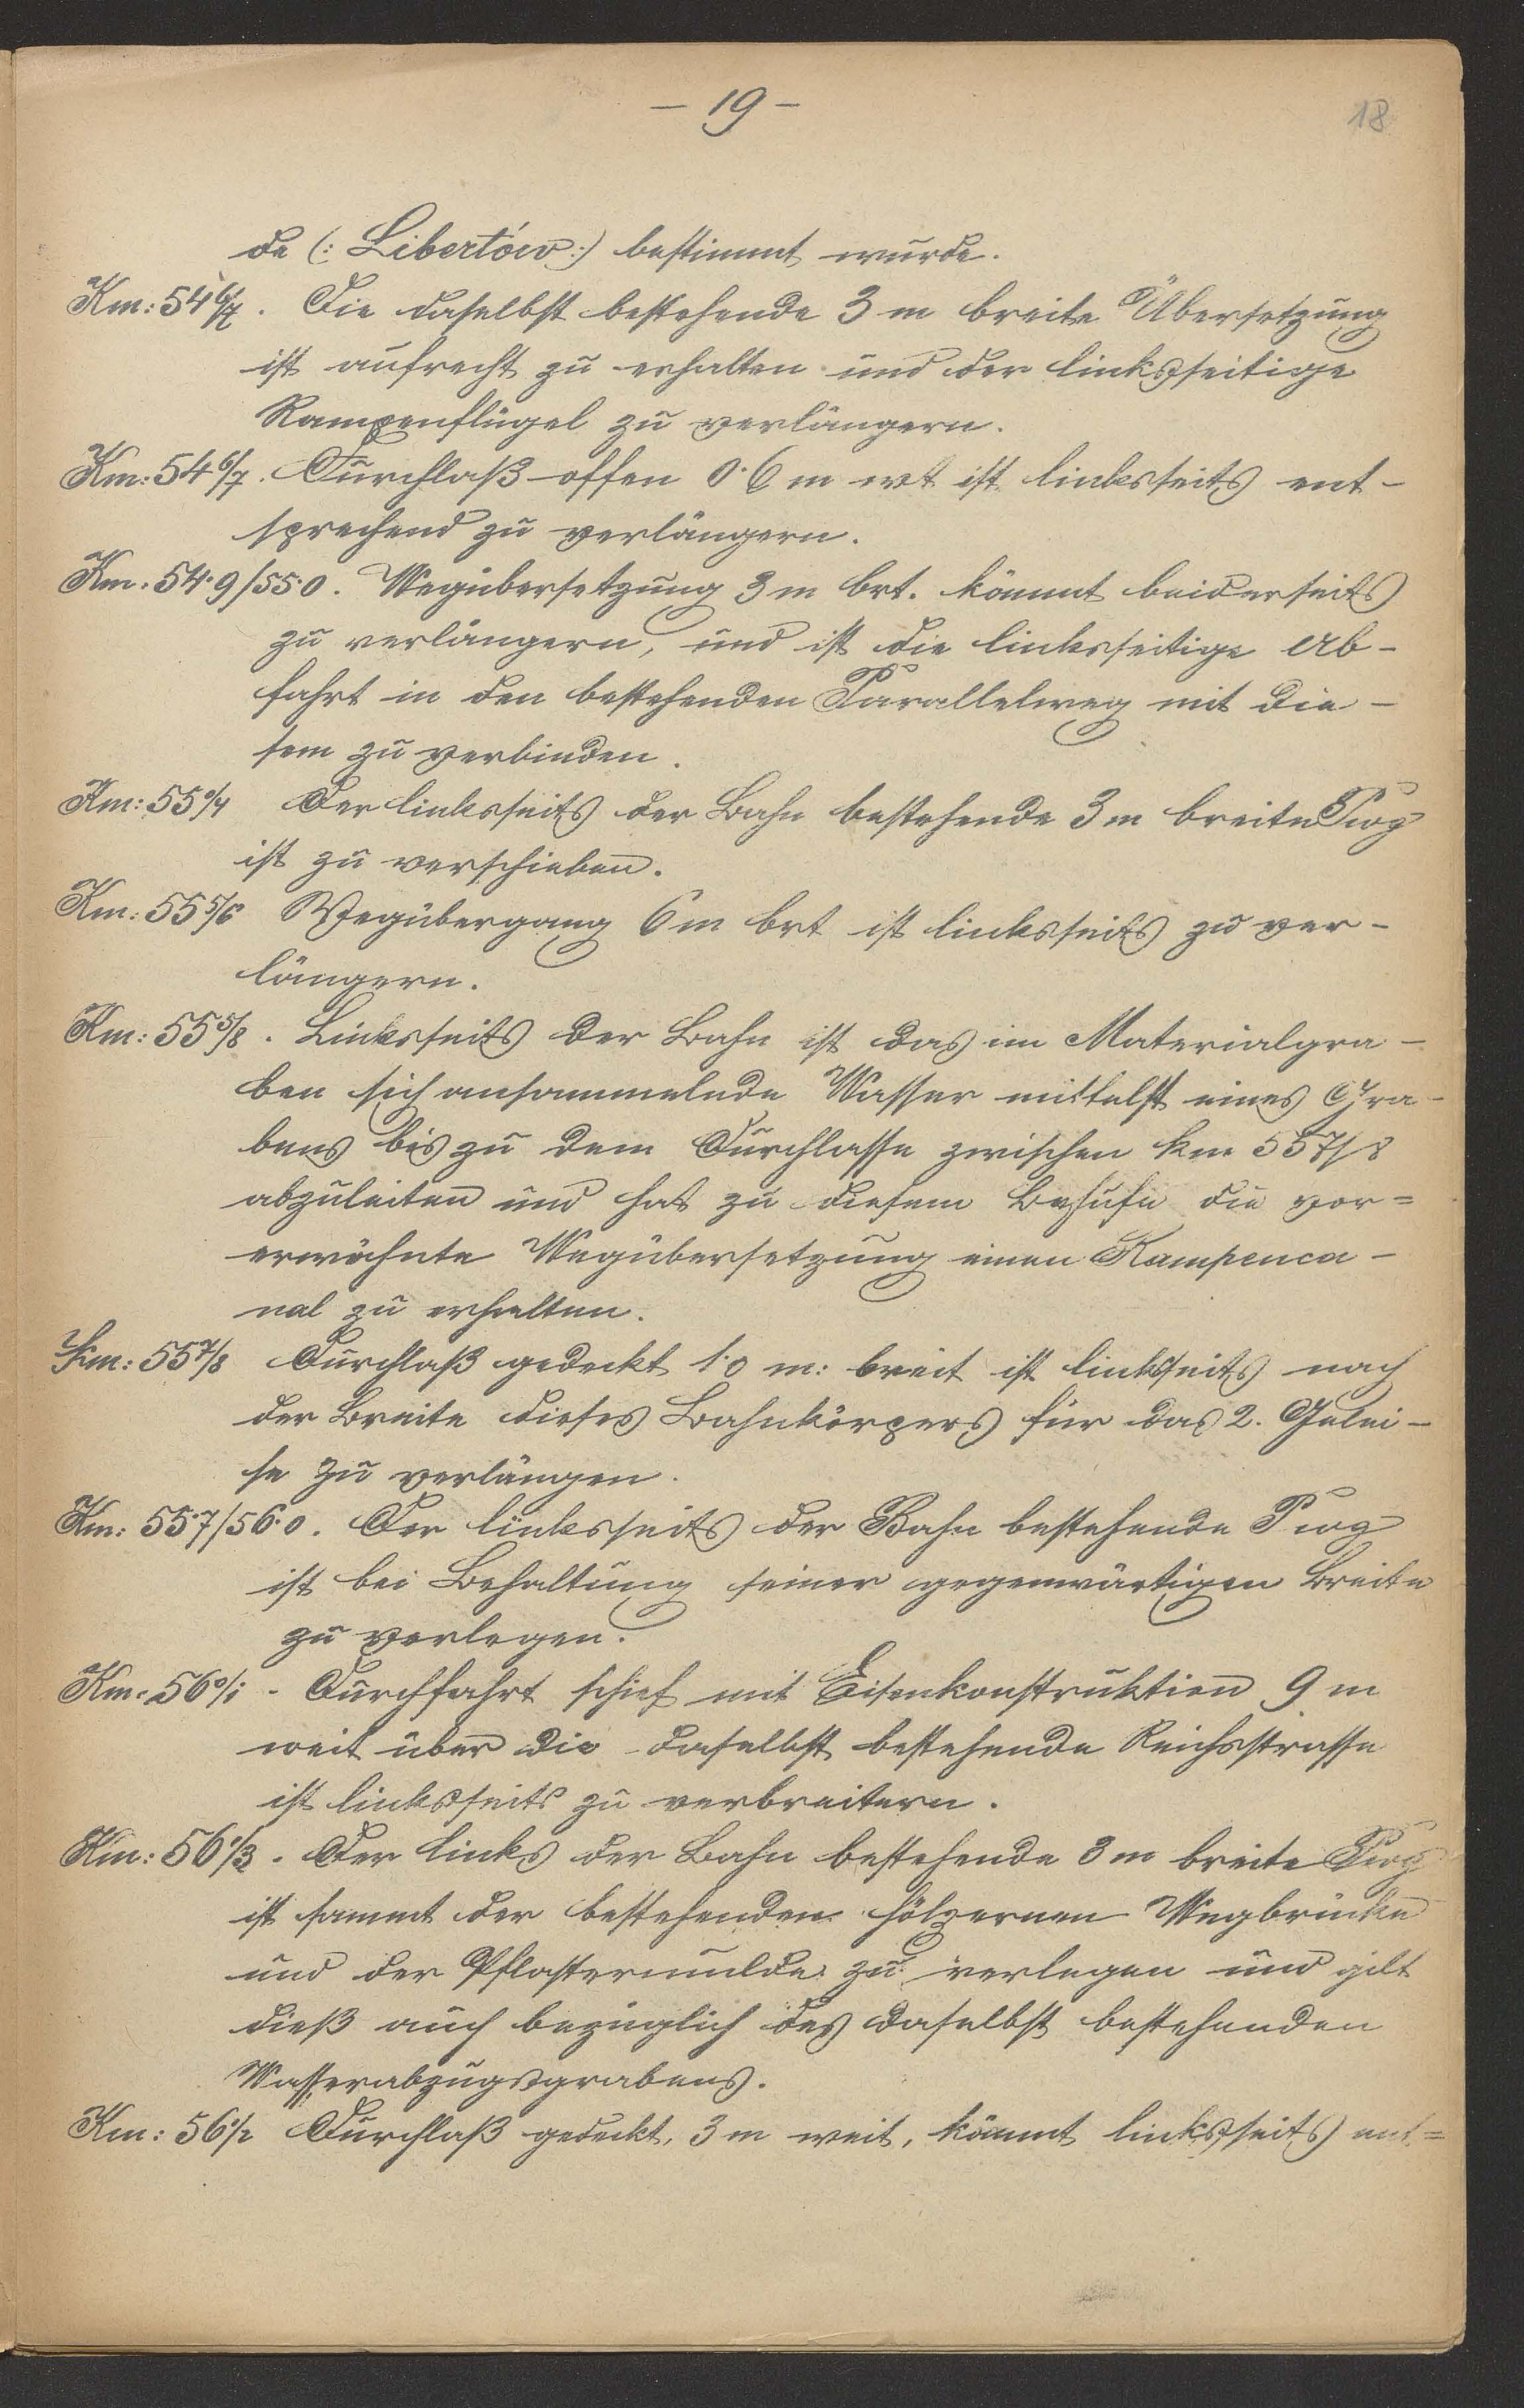 — 19 —
18
de (: Libertów :) bestimmt wurde.
Km: 54 6/7. Die daselbst bestehende 3 m breite Übersetzung
ist aufrecht zu erhalten und der linksseitige
Rampenflügel zu verlängern.
Km: 54 6/7. Durchlaß offen 0·6 m wt ist linksseits ent-
sprechend zu verlängern.
Km. 54·9/55·0. Wegübersetzung 3 m brt. kömmt beiderseits
zu verlängern, und ist die linksseitige Ab-
fahrt in den bestehenden Parallelweg mit die-
sem zu verbinden.
Km: 55 0/4 Der linksseits der Bahn bestehende 3 m breite Pwg
ist zu verschieben.
Km: 55 5/6 Wegübergang 6 m brt ist linksseits zu ver-
längern.
Km: 55 5/8. Linksseits der Bahn ist das im Materialgra-
ben sich ansammelnde Wasser mittelst eines Gra-
bens bis zu dem Durchlasse zwischen km 55 7/8
abzuleiten und hat zu diesem Behufe die vor=
erwähnte Wegübersetzung einen Rampenca-
nal zu erhalten.
Km: 55 7/8 Durchlaß gedeckt 1·0 m: breit ist linksseits nach
der Breite dieses Bahnkörpers für das 2. Gelei-
se zu verlängen.
Km: 55·7/56·0. Der linksseits der Bahn bestehende Pwg
ist bei Behaltung seiner gegenwärtigen Breite
zu verlegen.
Km: 56 0/1 - Durchfahrt schief mit Eisenkonstruktion 9 m
weit über die daselbst bestehende Reichsstrasse
ist linksseits zu verbreitern.
Km: 56 1/3. Der links der Bahn bestehende 3 m breite Pwg
ist sammt der bestehenden hölzernen Wegbrücke
und der Pflastermulde zu verlegen und gilt
dieß auch bezüglich des daselbst bestehenden
Wasserabzugsgrabens.
Km: 56 1/2 Durchlaß gedeckt, 3 m weit, kömmt linksseits ent=